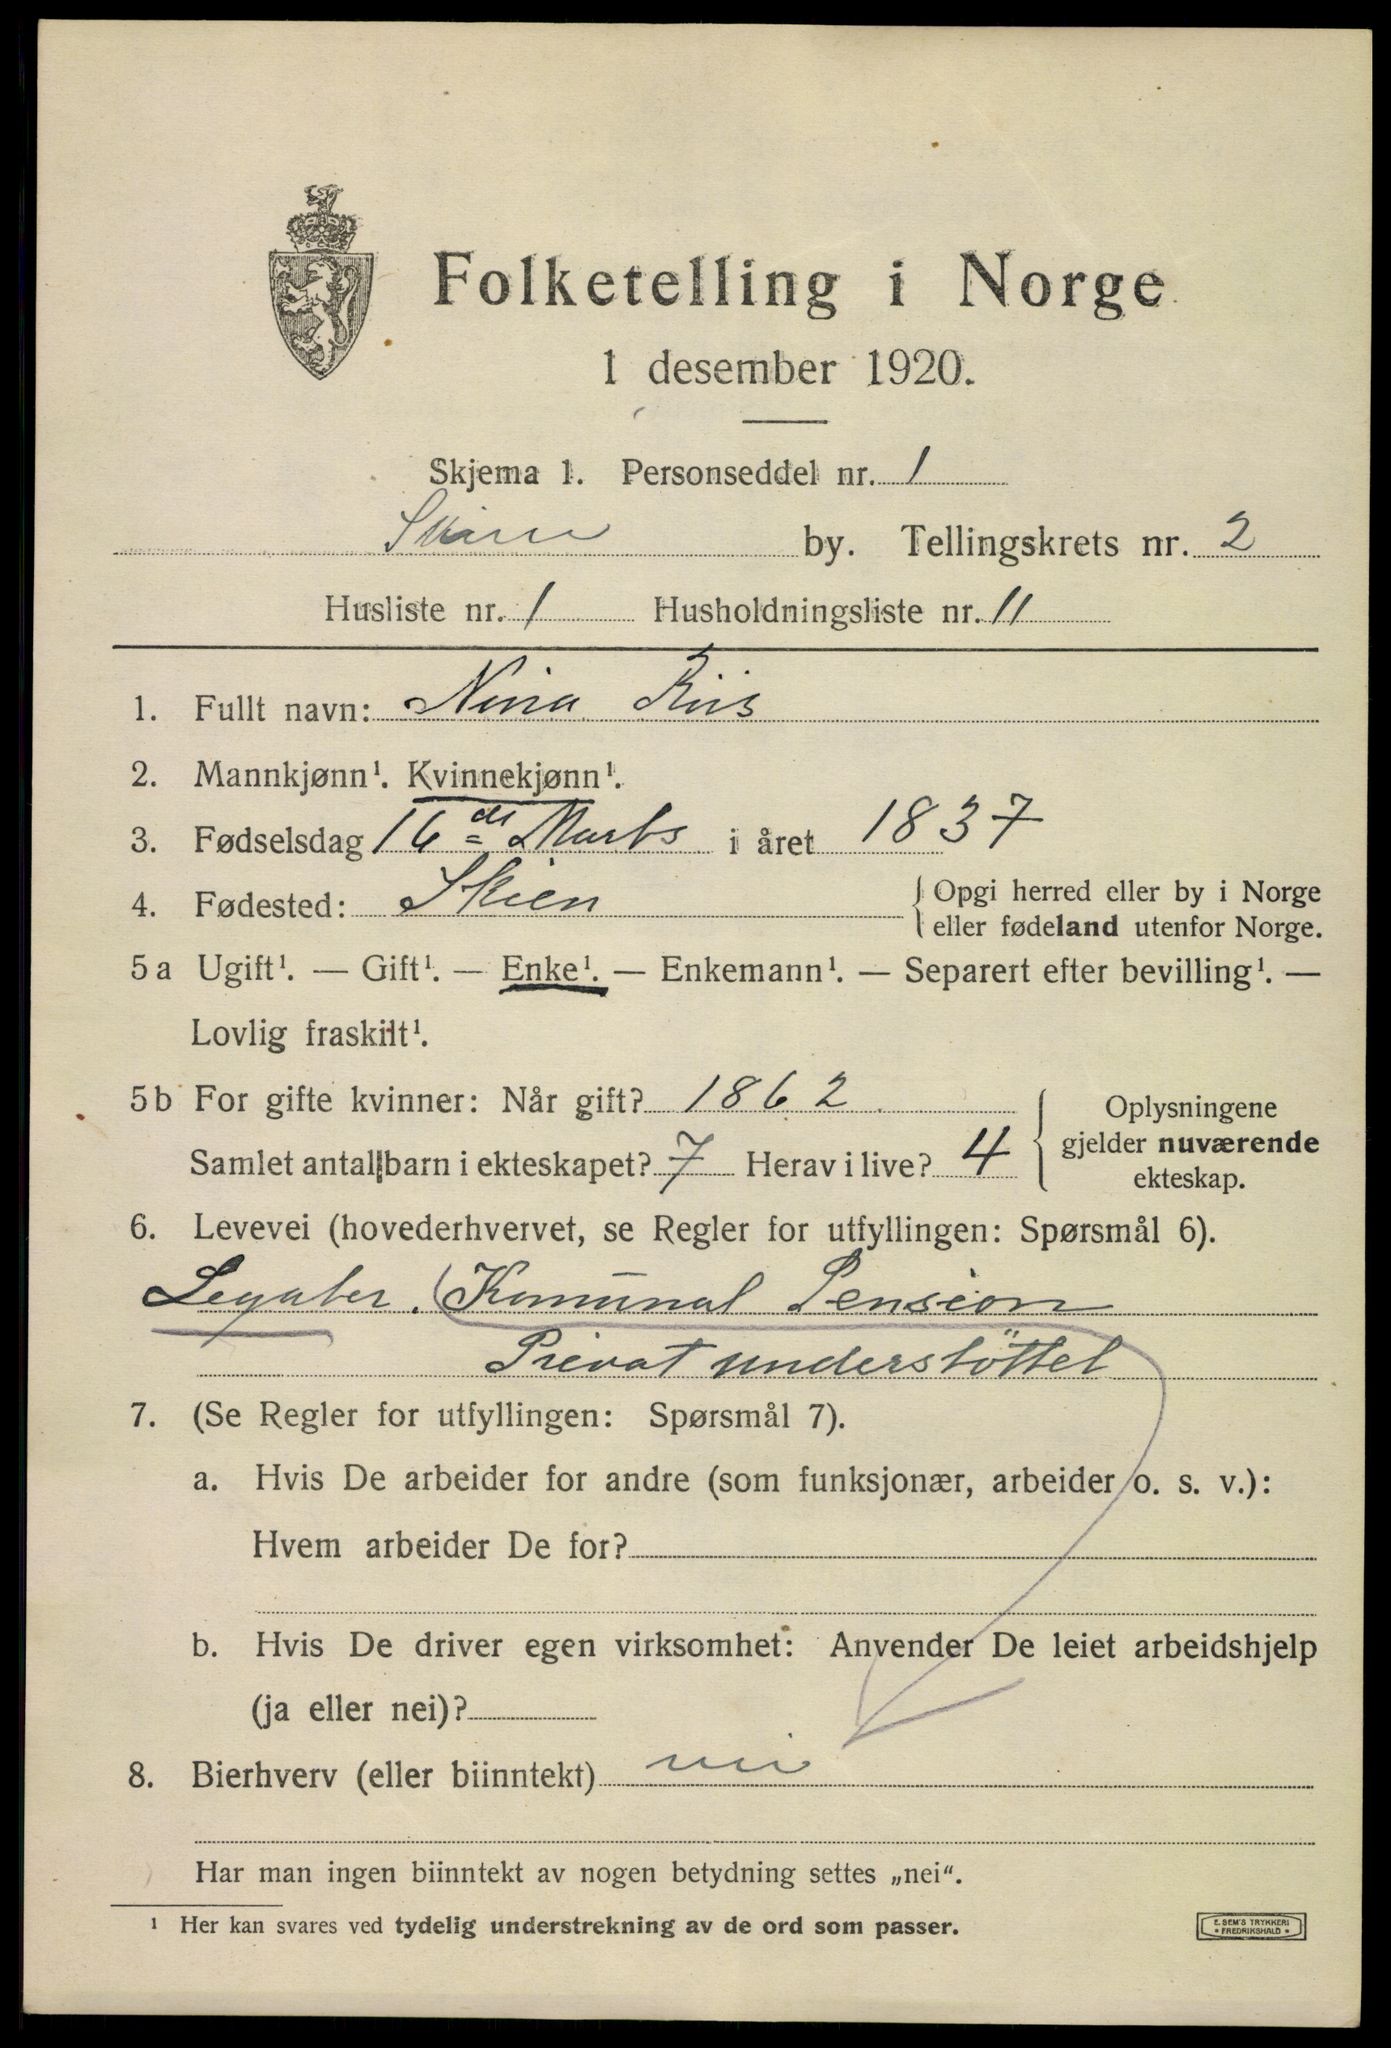 Folketelling i Norge
1 desember 1920.
Skjema 1. Personseddel nr. 1
Skien by. Tellingskrets nr. 2
Husliste nr. 1 Husholdningsliste nr. 11
1. Fullt navn: Nina Riis
2. Mannkjønn¹. Kvinnekjønn¹.
3. Fødselsdag 16de Marts i året 1837
4. Fødested: Skien { Opgi herred eller by i Norge
eller fødeland utenfor Norge.
5a Ugift¹. — Gift¹. — Enke¹. — Enkemann¹. — Separert efter bevilling¹. —
Lovlig fraskilt¹.
5b For gifte kvinner: Når gift? 1862
Samlet antal barn i ekteskapet? 7 Herav i live? 4
Oplysningene
gjelder nuværende
ekteskap.
6. Levevei (hovederhvervet, se Regler for utfyllingen: Spørsmål 6).
Legater. (Komunal Pension
Privat understöttet
7. (Se Regler for utfyllingen: Spørsmål 7).
a. Hvis De arbeider for andre (som funksjonær, arbeider o. s. v.):
Hvem arbeider De for?
b. Hvis De driver egen virksomhet: Anvender De leiet arbeidshjelp
(ja eller nei)?
8. Bierhverv (eller biinntekt) nei
Har man ingen biinntekt av nogen betydning settes „nei“.
¹ Her kan svares ved tydelig understrekning av de ord som passer.
E. SEM'S TRYKKERI
• FREDRIKSHALD •